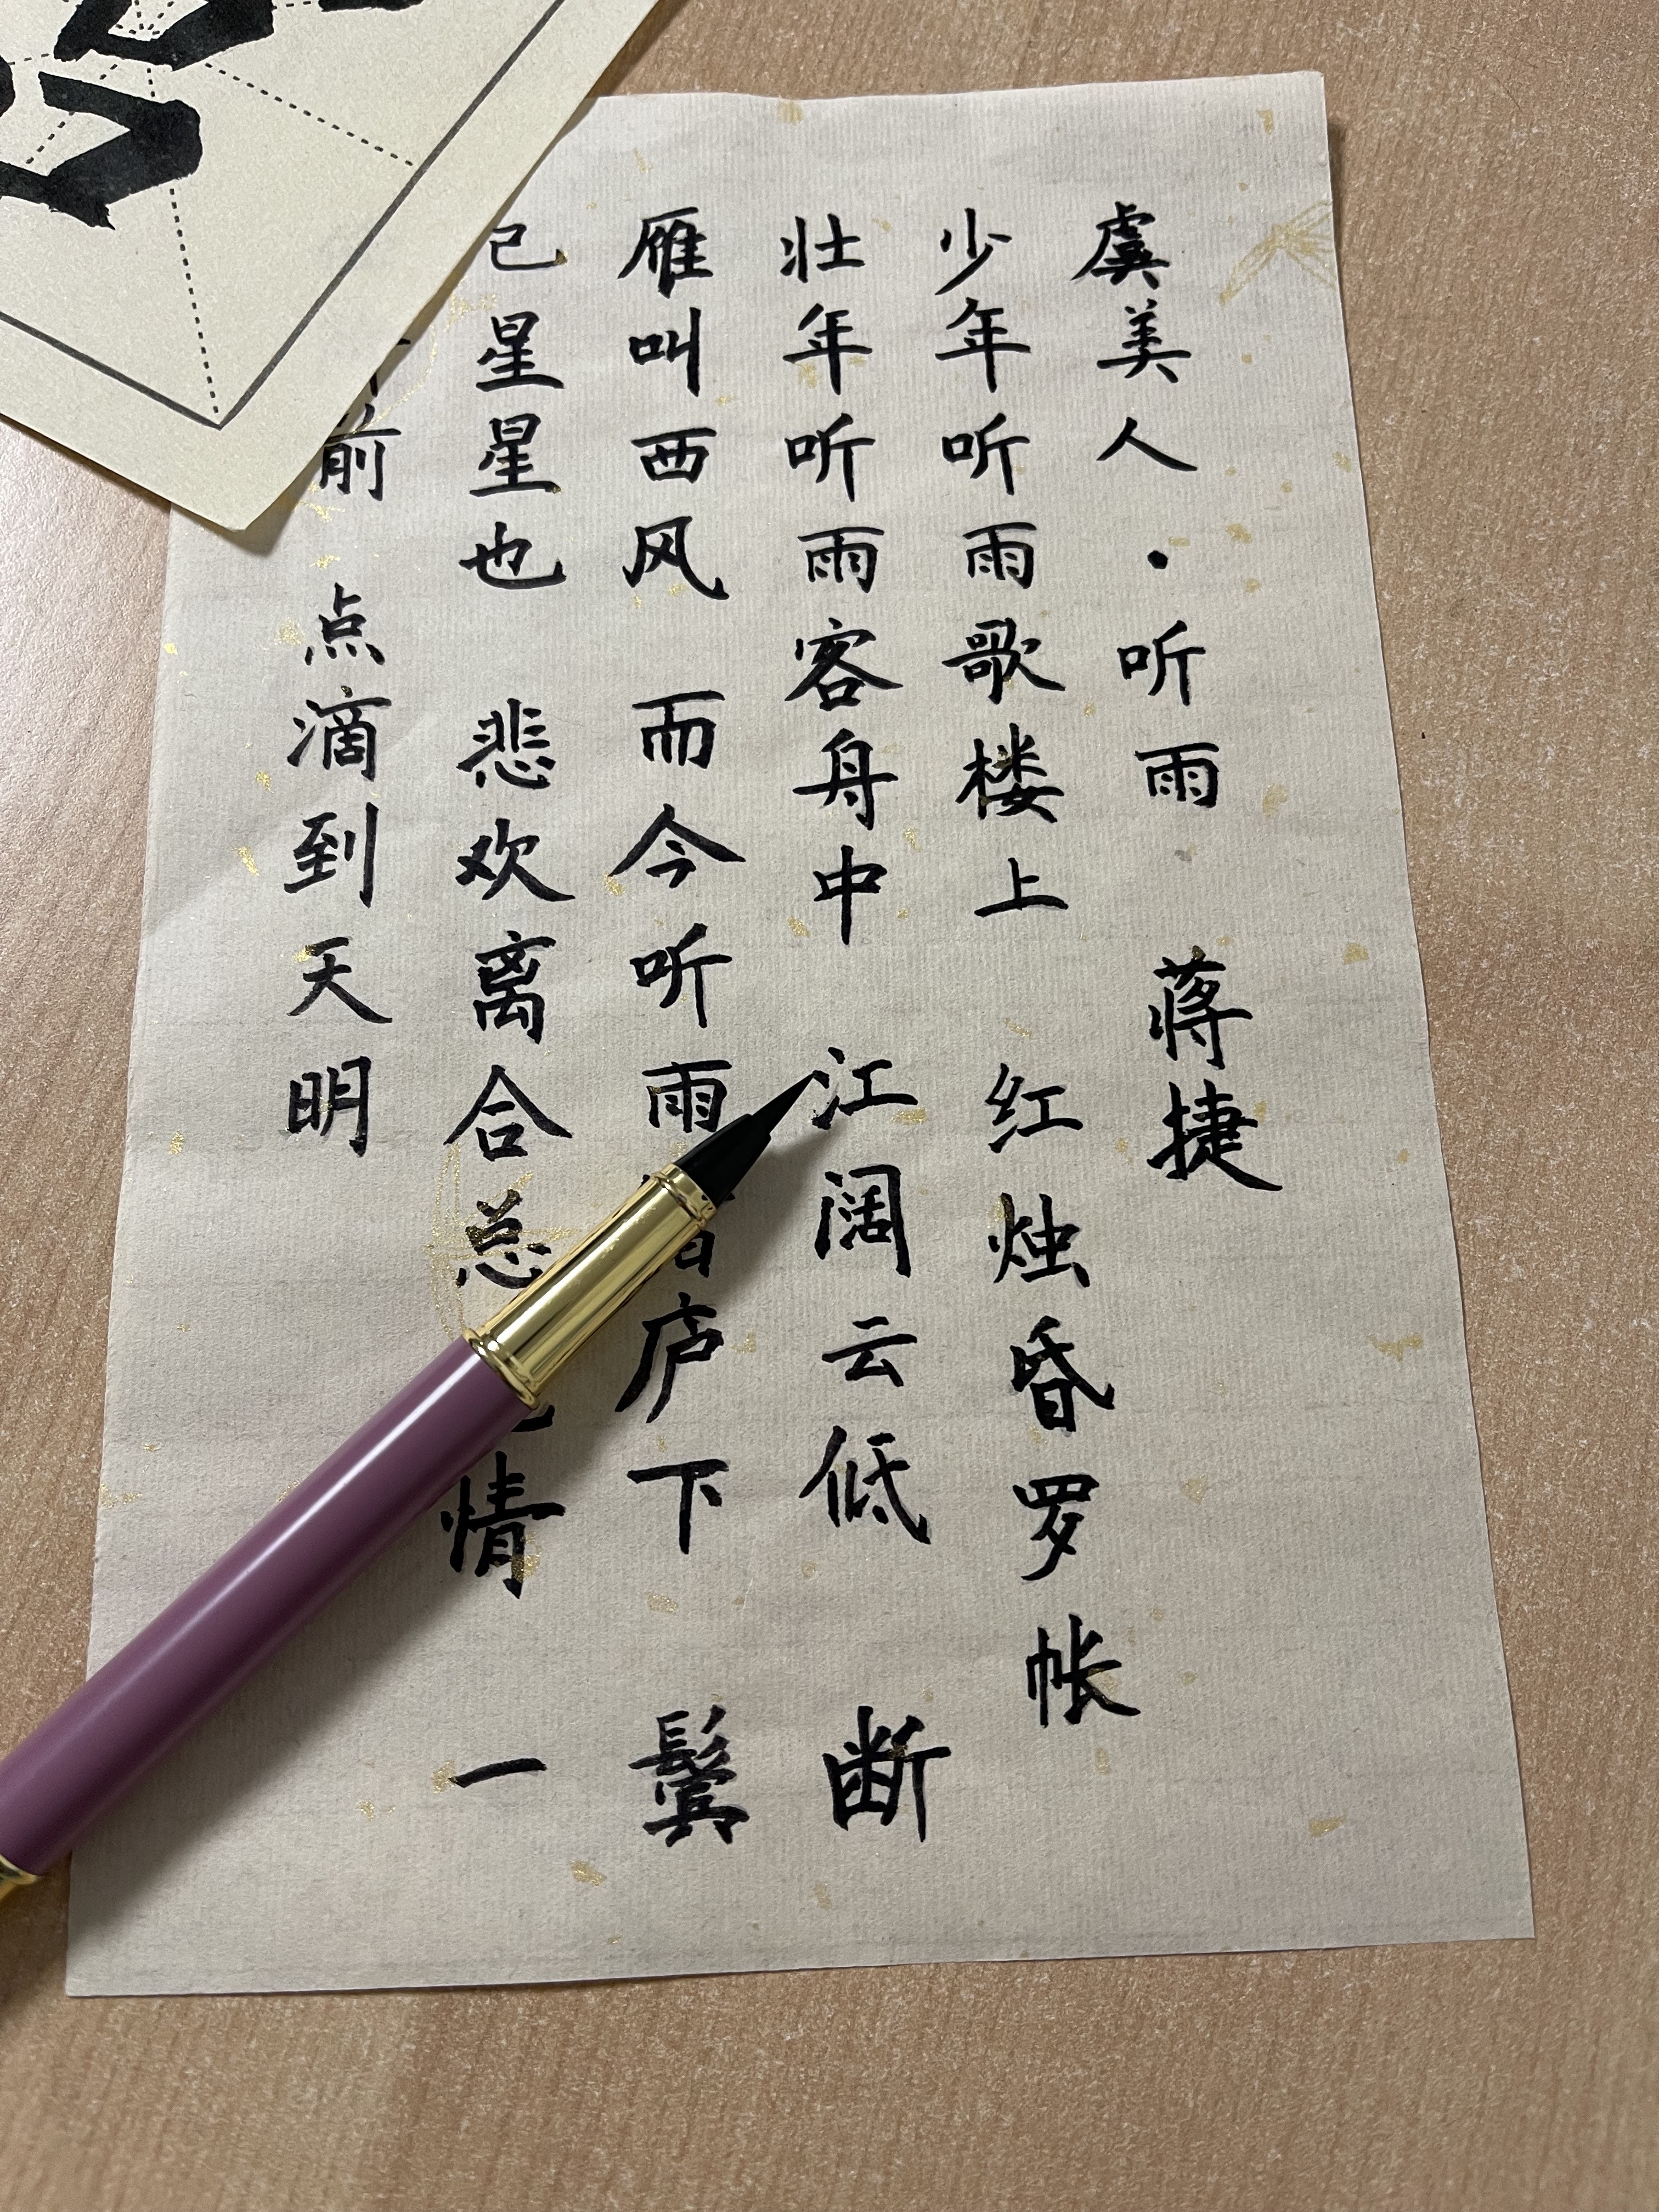 虞美人·听雨 蒋捷
少年听雨歌楼上 红烛昏罗帐
壮年听雨客舟中 江阔云低 断
雁叫西风 而今听雨 庐下 鬓
已星星也 悲欢离合总 情 一
前 点滴到天明